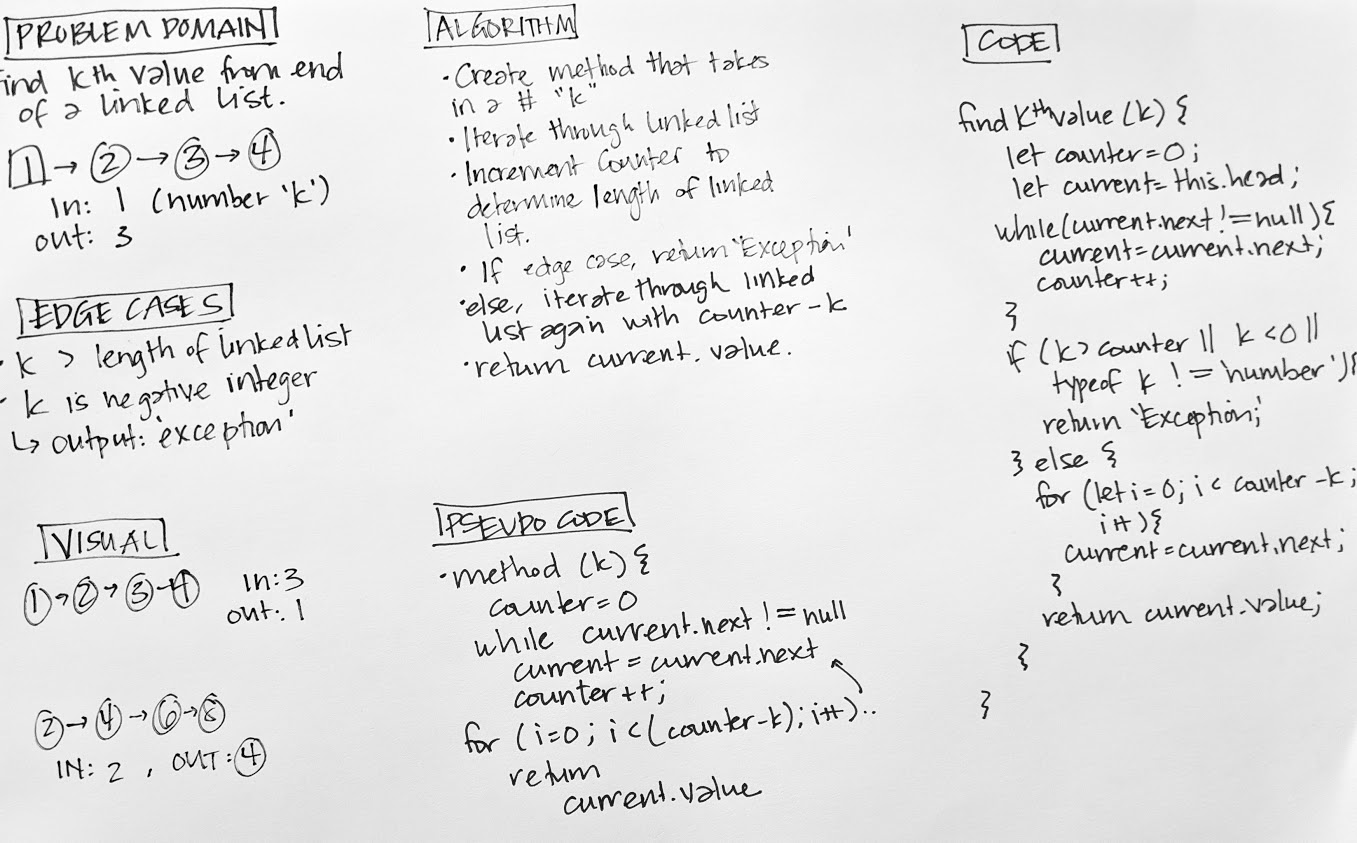 PROBLEM DOMAIN
find kth value from end
of a linked list.
1 → 2 → 3 → 4
In: 1 (number 'k')
out: 3
EDGE CASES
· k > length of linked list
· k is negative integer
↳ output: 'exception'
VISUAL
1 → 2 → 3 → 4 In: 3
out: 1
2 → 4 → 6 → 8
IN: 2 , OUT: 4
ALGORITHM
· Create method that takes
in a # "k"
· Iterate through linked list
· Increment counter to
determine length of linked
list.
· If edge case, return 'Exception'
· else, iterate through linked
list again with counter - k
· return current.value.
PSEUDO CODE
· method (k) {
counter = 0
while current.next != null
current = current.next
counter++;
for (i=0; i < (counter-k); i++)..
return
current.value
CODE
find Kth value (k) {
let counter = 0;
let current = this.head;
while (current.next != null) {
current = current.next;
counter++;
}
if (k > counter || k < 0 ||
typeof k != 'number') {
return 'Exception;'
} else {
for (let i = 0; i < counter - k;
i++) {
current = current.next;
}
return current.value;
}
}